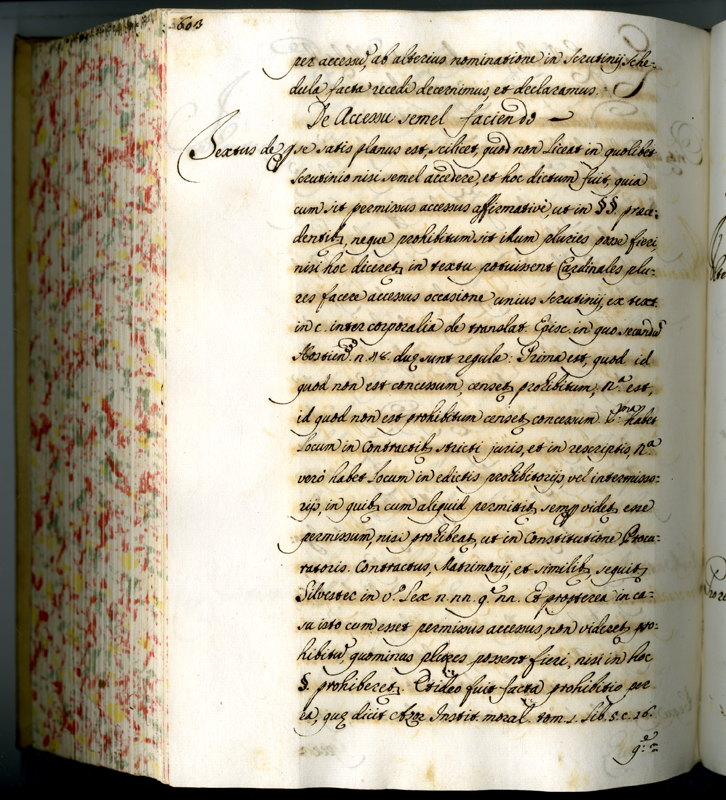 603
per accessũ, ab alterius nominatione in Scrutinij Sche-
dula facta recedi decernimus et declaramus.
De Accessu semel faciendo
Textus de se satis planus est, scilicet, quod non liceat in quolibet
Scrutinio nisi semel accedere, et hoc dictum fuit, quia
cum sit permissus accessus affirmative ut in §§. præce-
dentib, neque prohibitum sit illum pluries posse fieri
nisi hoc diceret in textu potuissent Cardinales plu-
res facere accessus occasione unius Scrutinij ex text.
in c. inter corporalia de translat. Episc. in quo secundũ
Hostien. n. 48. duę sunt regulæ: Prima est, quod id
quod non est concessum, censet prohibitum; 2.ª est,
id quod non est prohibitum censet concessum. habet
locum in Contractib stricti juris, et in rescriptis, 2.ª
verò habet locum in edictis prohibitorijs vel
rijs, in quib cum aliquid permittit semp videt esse
permissum, nisi prohibeat, ut in Constitutione Procu-
ratoris. Contractus, Matrimonij, et similib sequit
Silvester in v.º Lex n. Et propterea in ca-
su isto cum esset permissus accessus, non videret pro-
hibitũ, quominus plures possent fieri, nisi in hoc
§. prohiberet. Et ideo fuit facta prohibitio per
ea, quę dicit Azor Instit. moral. tom. 1. lib. 5. c. 26.